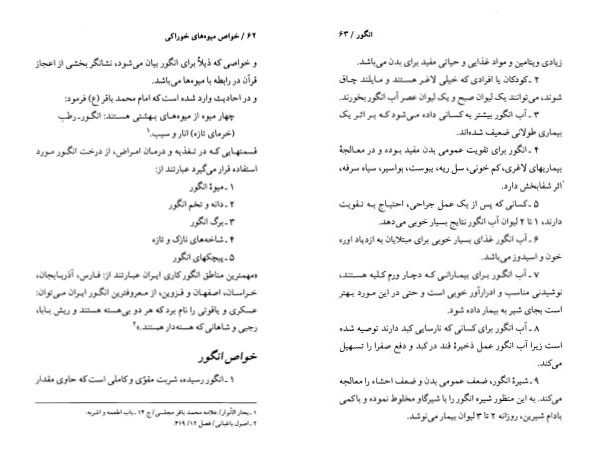 ۶۲ / خواص میوه‌های خوراکی
و خواصی که ذیلاً برای انگور بیان می‌شود، نشانگر بخشی از اعجاز
قرآن در رابطه با میوه‌ها می‌باشد.
و در احادیث وارد شده است که امام محمد باقر (ع) فرمود:
چهار میوه از میوه‌های بهشتی هستند: انگور ـ رطب
(خرمای تازه) انار و سیب.۱
قسمتهایی که در تغذیه و درمان امراض، از درخت انگور مورد
استفاده قرار می‌گیرد عبارتند از:
۱ ـ میوهٔ انگور
۲ ـ دانه و تخم انگور
۳ ـ برگ انگور
۴ ـ شاخه‌های نازک و تازه
۵ ـ پیچکهای انگور
«مهمترین مناطق انگور کاری ایران عبارتند از: فارس، آذربایجان،
خراسان، اصفهان و قزوین، از معروفترین انگور ایران می‌توان:
عسکری و یاقوتی را نام برد که هر دو بی‌هسته هستند و ریش بابا،
رجبی و شاهانی که هسته‌دار هستند.»۲
خواص انگور
۱ ـ انگور رسیده، شربت مقوّی و کاملی است که حاوی مقدار
۱ ـ بحار الأنوار / علامه محمد باقر مجلسی / ج ۱۴ ـ باب اطعمه و اشربه.
۲ ـ اصول باغبانی / فصل ۱۲ / ۴۱۹.
انگور / ۶۳
زیادی ویتامین و مواد غذایی و حیاتی مفید برای بدن می‌باشد.
۲ ـ کودکان یا افرادی که خیلی لاغر هستند و مایلند چاق
شوند، می‌توانند یک لیوان صبح و یک لیوان عصر آب انگور بخورند.
۳ ـ آب انگور بیشتر به کسانی داده می‌شود که بر اثر یک
بیماری طولانی ضعیف شده‌اند.
۴ ـ انگور برای تقویت عمومی بدن مفید بوده و در معالجهٔ
بیماریهای لاغری، کم خونی، سل ریه، یبوست، بواسیر، سیاه سرفه،
اثر شفابخش دارد.
۵ ـ کسانی که پس از یک عمل جراحی، احتیاج به تقویت
دارند، ۱ تا ۲ لیوان آب انگور نتایج بسیار خوبی می‌دهد.
۶ ـ آب انگور غذای بسیار خوبی برای مبتلایان به ازدیاد اوره
خون و اسیدوز می‌باشد.
۷ ـ آب انگور برای بیمارانی که دچار ورم کلیه هستند،
نوشیدنی مناسب و ادرارآور خوبی است و حتی در این مورد بهتر
است بجای شیر به بیمار داده شود.
۸ ـ آب انگور برای کسانی که نارسایی کبد دارند توصیه شده
است زیرا آب انگور عمل ذخیرهٔ قند در کبد و دفع صفرا را تسهیل
می‌کند.
۹ ـ شیرهٔ انگور، ضعف عمومی بدن و ضعف احشاء را معالجه
می‌کند. به این منظور شیره انگور را با شیرگاو مخلوط نموده و باکمی
بادام شیرین، روزانه ۲ تا ۳ لیوان بیمار می‌نوشد.